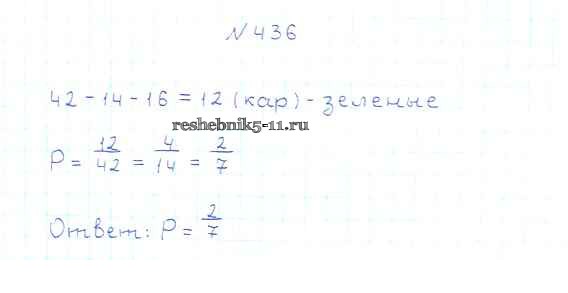 № 436
42 - 14 - 16 = 12 (кар) - зеленые
reshebnik5-11.ru
P = 12/42 = 4/14 = 2/7
Ответ: P = 2/7